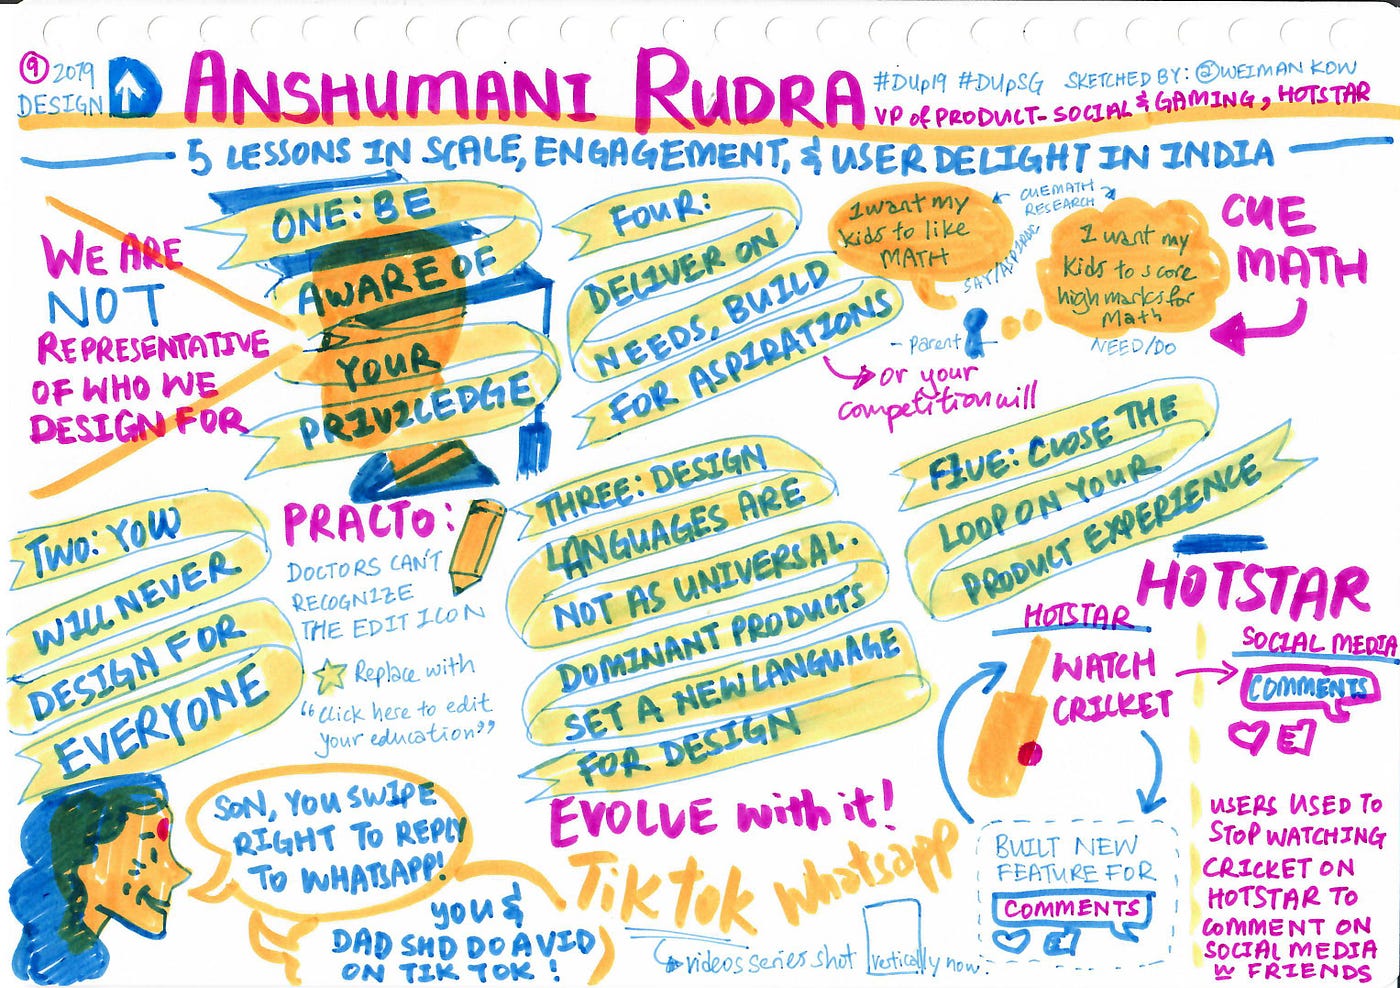 9 2019
DESIGN
ANSHUMANI RUDRA
#DUp19 #DUpSG SKETCHED BY: @WEIMAN KOW
VP of PRODUCT - SOCIAL & GAMING, HOTSTAR
5 LESSONS IN SCALE, ENGAGEMENT, & USER DELIGHT IN INDIA
WE ARE
NOT
REPRESENTATIVE
OF WHO WE
DESIGN FOR
ONE: BE
AWARE OF
YOUR
PRIVILEDGE
TWO: YOU
WILL NEVER
DESIGN FOR
EVERYONE
PRACTO:
DOCTORS CAN'T
RECOGNIZE
THE EDIT ICON
Replace with
"Click here to edit
your education"
SON, YOU SWIPE
RIGHT TO REPLY
TO WHATSAPP!
YOU &
DAD SHD DO A VID
ON TIK TOK!
THREE: DESIGN
LANGUAGES ARE
NOT AS UNIVERSAL.
DOMINANT PRODUCTS
SET A NEW LANGUAGE
FOR DESIGN
EVOLVE with it!
Tiktok whatsapp
videos series shot vertically now.
FOUR:
DELIVER ON
NEEDS, BUILD
FOR ASPIRATIONS
or your
competition will
I want my
kids to like
MATH
CUEMATH
RESEARCH
SAY/ASPIRING
I want my
kids to score
high marks for
Math
NEED/DO
- Parent
CUE
MATH
FIVE: CLOSE THE
LOOP ON YOUR
PRODUCT EXPERIENCE
HOTSTAR
HOTSTAR
WATCH
CRICKET
SOCIAL MEDIA
COMMENTS
BUILT NEW
FEATURE FOR
COMMENTS
USERS USED TO
STOP WATCHING
CRICKET ON
HOTSTAR TO
COMMENT ON
SOCIAL MEDIA
W FRIENDS